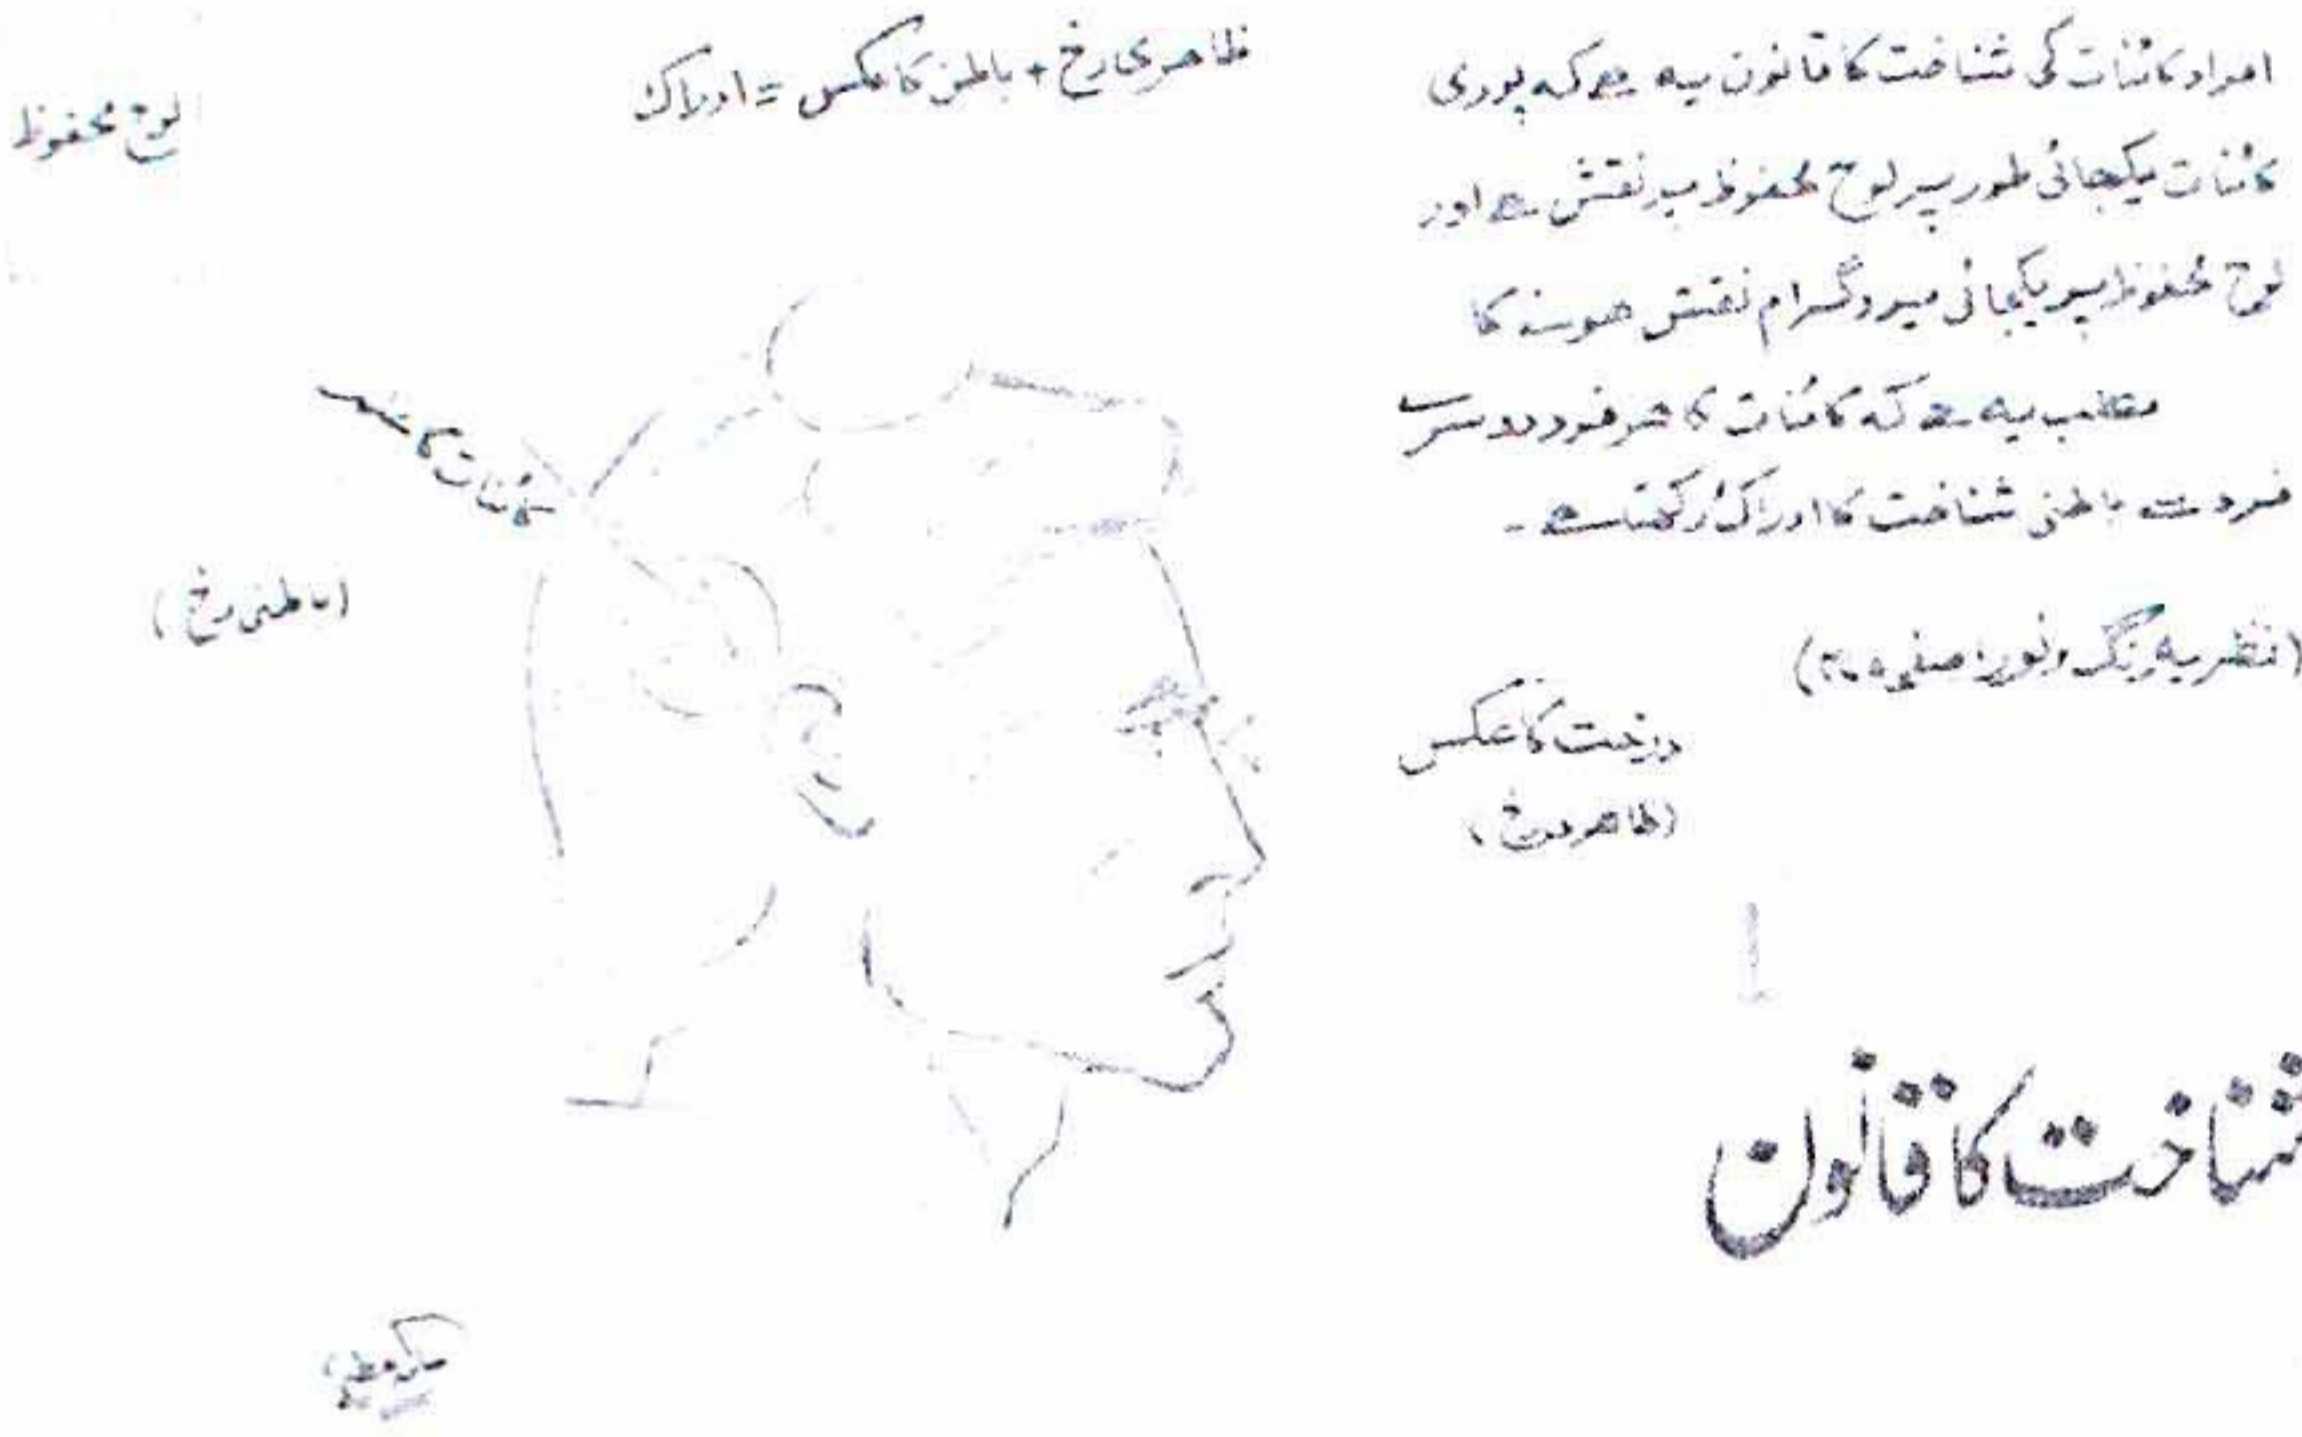 افراد کائنات کی شناخت کا قانون یہ ہے کہ پوری
کائنات یکجائی طور پر لوح محفوظ پر نقش ہے اور
لوح محفوظ پر یکجائی پروگرام نقش ہونے کا
مطلب یہ ہے کہ کائنات کا ہر فرد دوسرے
فرد سے باطنی شناخت کا ادراک رکھتا ہے۔
(نظریہ رنگ و نور: صفحہ
درخت کا عکس
(ظاہری رخ)
ظاہری رخ + باطن کا عکس = ادراک
لوح محفوظ
کائنات کا
(باطنی رخ)
شناخت کا قانون